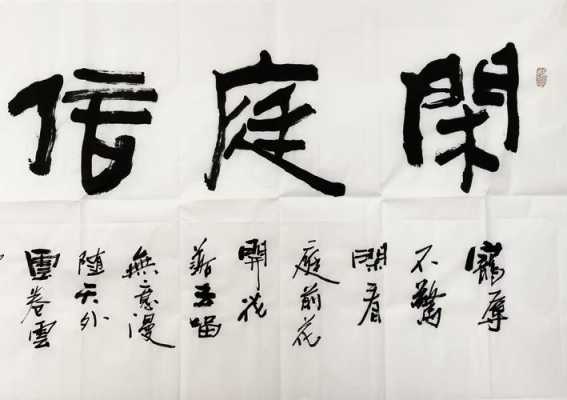 閑庭信
寵辱
不驚
閑看
庭前花
開花
落去留
無意漫
随天外
雲卷雲